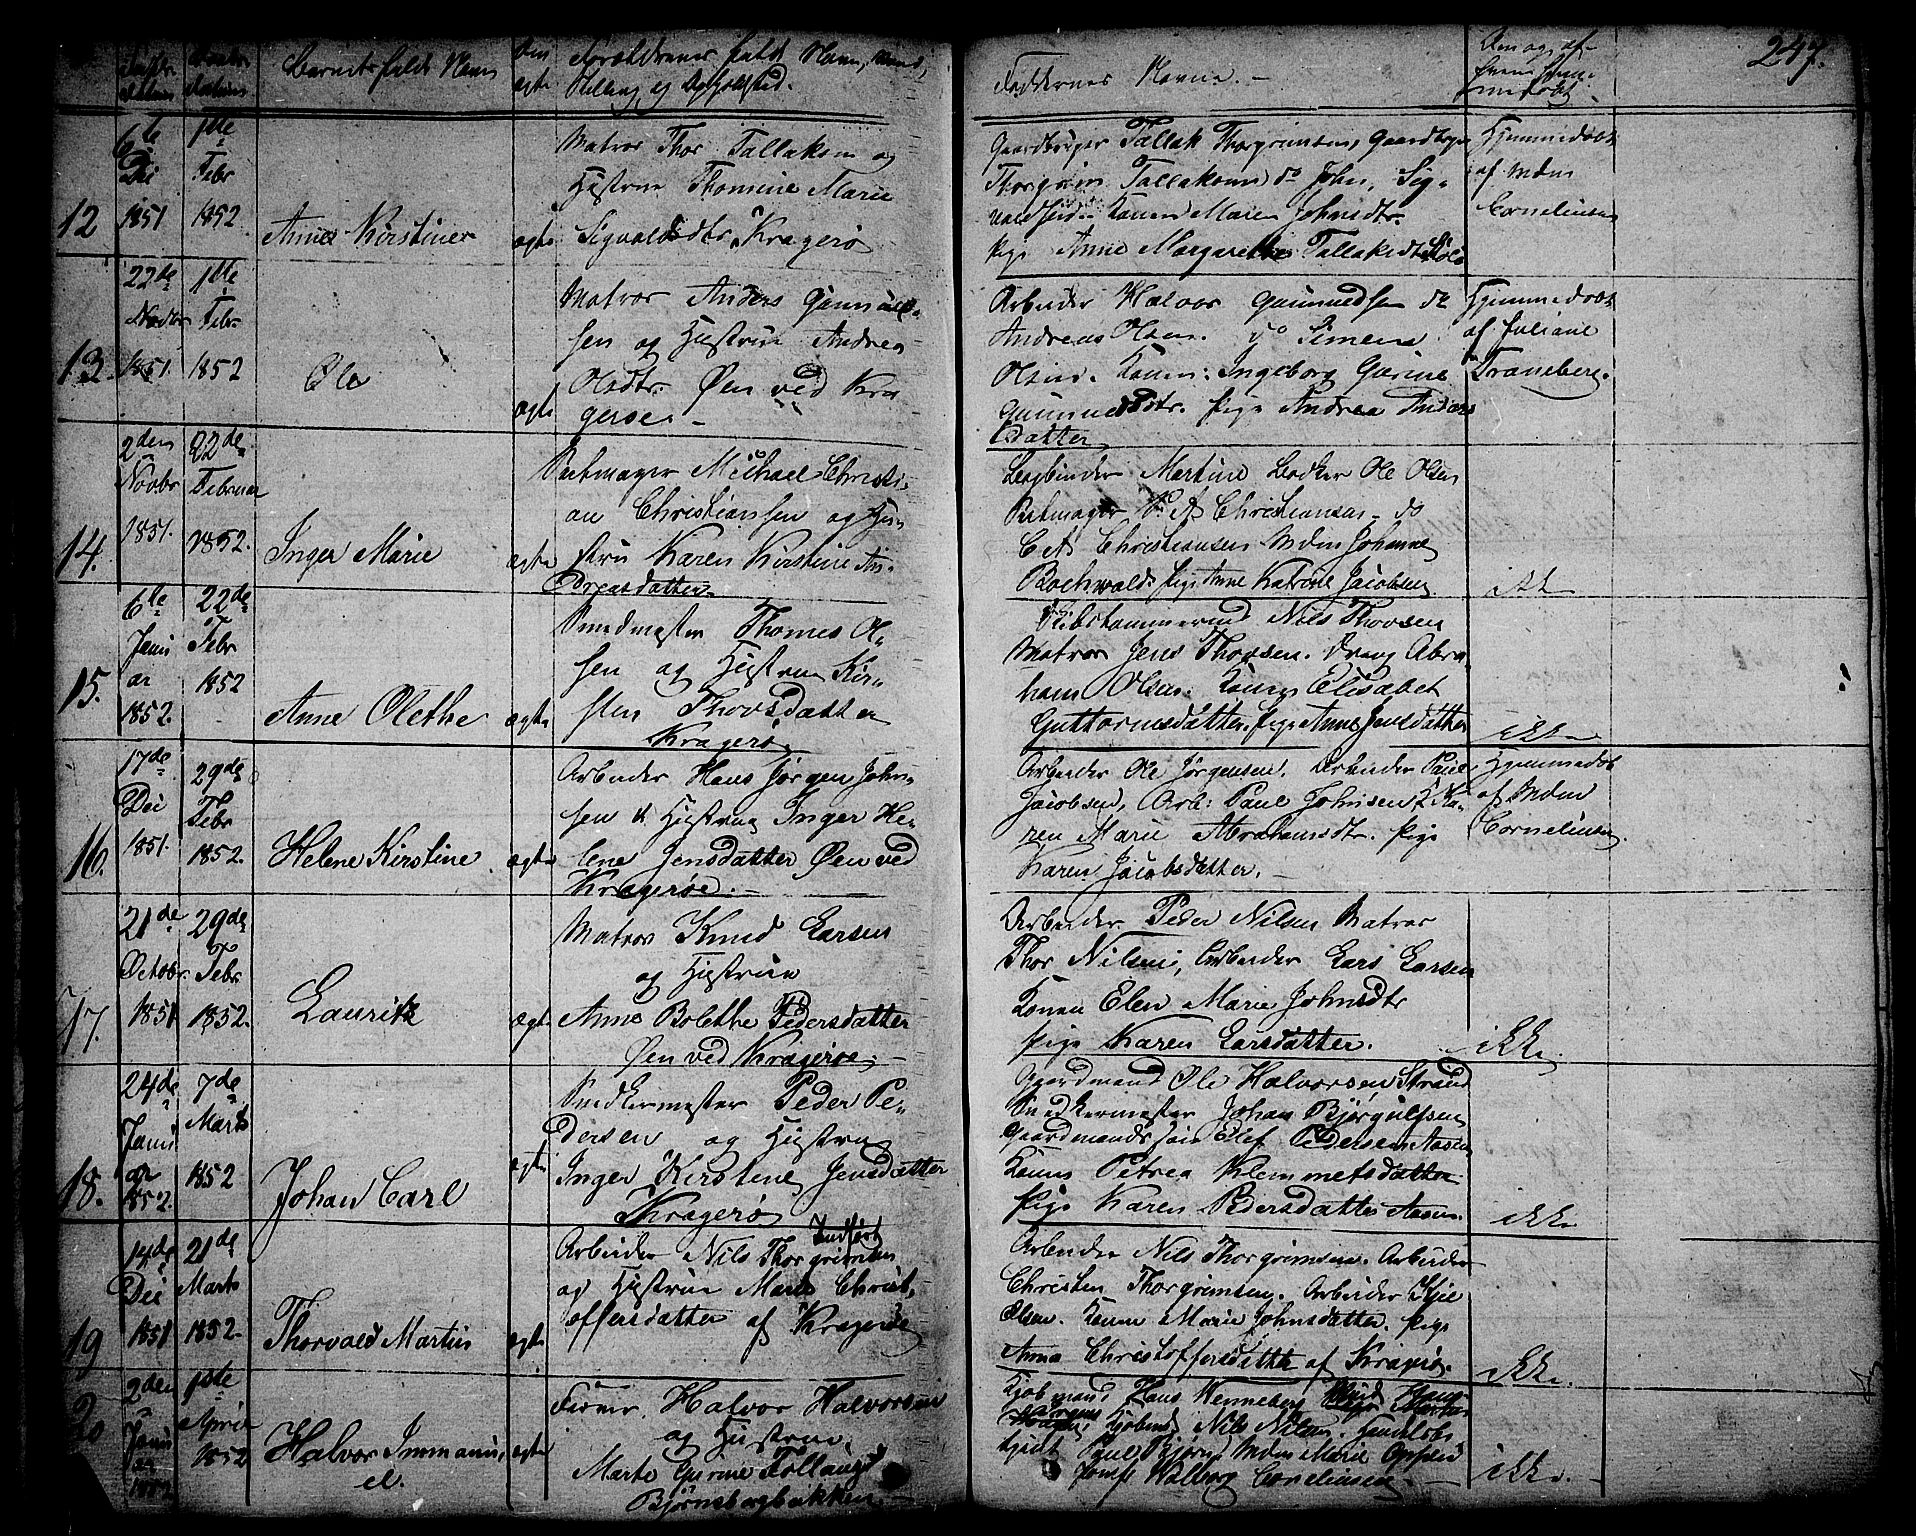 247.
Barnets fulde Navn
ægte
Forældrenes fulde Navn, Stand,
Stilling og Opholdsted.
Faddernes Navne. -
12
6te
Dec
1851
1ste
Febr
1852
Anne Kirstine
ægte
Matros Thor Tallaksen og
Hustrue Thomine Marie
Sigvaldsdtr, Kragerø
Gaardbruger Tallak Thorgrimsen, Gaardbrger
Thorgrim Tallaksen do John, Sig-
Konen Maren Johnsdtr.
Pige Anne Margarethe Tallaksdtr
Hjemmedøbt
af Mdm
Corneliusen
13
22de
Novbr
1851.
1ste
Febr
1852
Ole
ægte
Matros Anders Gunnuld-
sen og Hustrue Andrea
Olsdtr. Øen ved Kra-
gerøe -
Arbeider Halvor Gunnuldsen do
Andreas Olsen. do Simen
Olsen. Konen: Ingeborg Gurine
Pige Andrea Anders
datter
Hjemmedøbt
af Juliane
Traneberg.
14.
2den
Novbr
1851.
22de
Februar
1852.
Inger Marie
ægte
Michael Christi-
an Christianssen og Hu-
stru Karen Kirstine An-
dreasdatter
Bogbinder Martin Ole Olsen
Christiansen do
Christiansen Mdm Johanne
Bochwald. Pige Anne Katrine Jacobsen
ikke
15.
6te
Janu
ar
1852.
22de
Febr
1852
Anne Olethe
ægte
Smedmester Thomes Ol-
sen og Hustrue Kir-
sten Thovsdatter
Kragerø
Skibstømmermd Nils Thovsen
Matros Jens Thovsen. Dreng Abra-
ham Olsen. Konen Elisabet
Guttormsdatter. Pige Anne Jensdatter
ikke
16.
17de
Dec
1851.
29de
Febr
1852.
Helene Kirstine
ægte
Arbeider Hans Jørgen John-
sen & Hustrue Inger He-
lene Jensdatter Øen ved
Kragerøe. -
Arbeider Ole Jørgensen. Arbeider Paul
Jacobsen, Arb: Paul Johnsen K Ka-
ren Marie Abrahamsdtr. Pige
Karen Jacobsdatter. -
Hjemmedøb
af Mdm
Cornelius
17.
21de
Octobr.
1851
29de
Febr
1852.
Lauritz
ægte
Matros Knud Larsen
og Hustrue
Anne Bolethe Pedersdatter
Øen ved Kragerøe. -
Arbeider Peder Nilsen Matros
Thor Nilsen, Arbeider Lars Larsen
Konen Elen Marie Johnsdtr
Pige Karen Larsdatter.
ikke
18.
24de
Janu
ar
1852.
7de
Marts
1852
Johan Carl
ægte
Snedkermester Peder Pe-
dersen og Hustrue
Inger Kirstine Jensdatter
Kragerø
Gaardmand Ole Halvorsen Strand
Snedkermester Johan Bjørgulfsen
Gaardmandssøn Elef Pedersen Aasen
Konen Petrea Klemmetsdatter
Pige Karen Pedersdatter Aasen.
ikke
19
14de
Dec
1851
21de
Marts
1852.
Thorvald Martin
ægte
Indført
Arbeider Nils Thorgrimsen
og Hustrue Marte Christ-
offersdatter af Kragerøe
Arbeider Nils Thorgrimsen. Arbeider
Christen Thorgrimsen. Arbeider Kjel
Olsen. Konen Marie Johnsdatter. Pige
Anna Christoffersdatter af Kragerø.
ikke.
20
2den
Janu
ar
1852
1ste
April
1852
Halvor Immanu-
el.
ægte
Halvor Halvorsen
og Hustrue
Marte Gurine
Bjørnsbogbakken
Kjøbmand Hans Wenneberg
Kjøbmd Nils Nilsen. Handelsbe
tjent Paul Bjørn, Mdm Marie
Jomf Walborg Cornelinsen.
ikke.